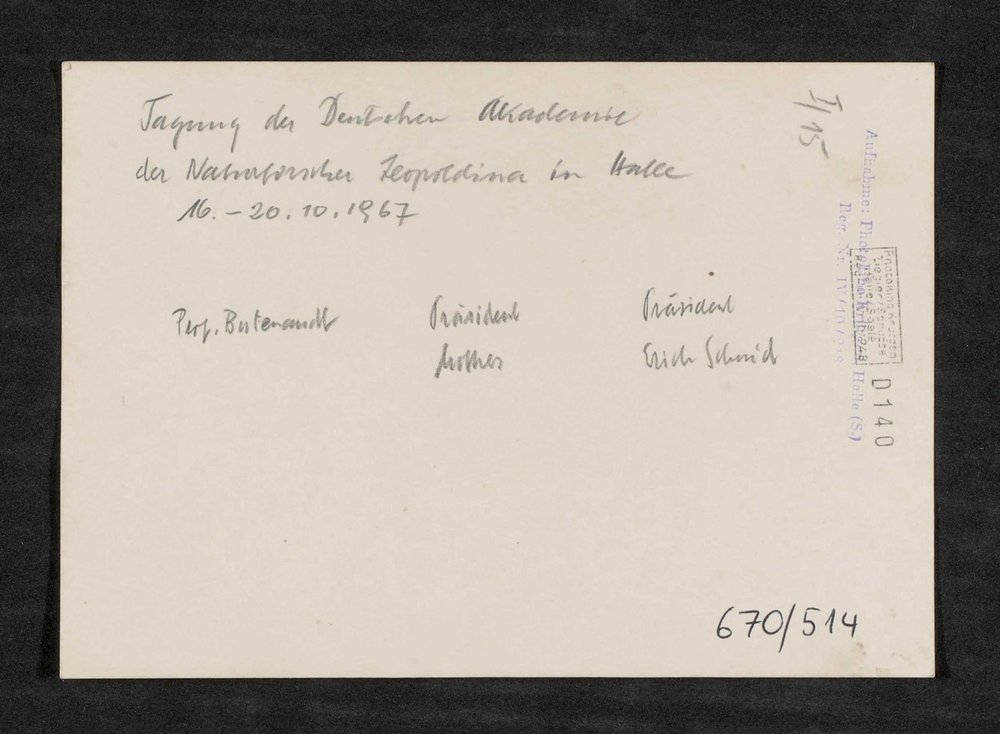 Tagung der Deutschen Akademie
der Naturforscher Leopoldina in Halle
16. – 20.10.1967
Prof. Butenandt
Präsident
Mothes
Präsident
Erich Schmid
I/15
Aufnahme: Halle (S.)
Reg. Nr.
D140
670/514